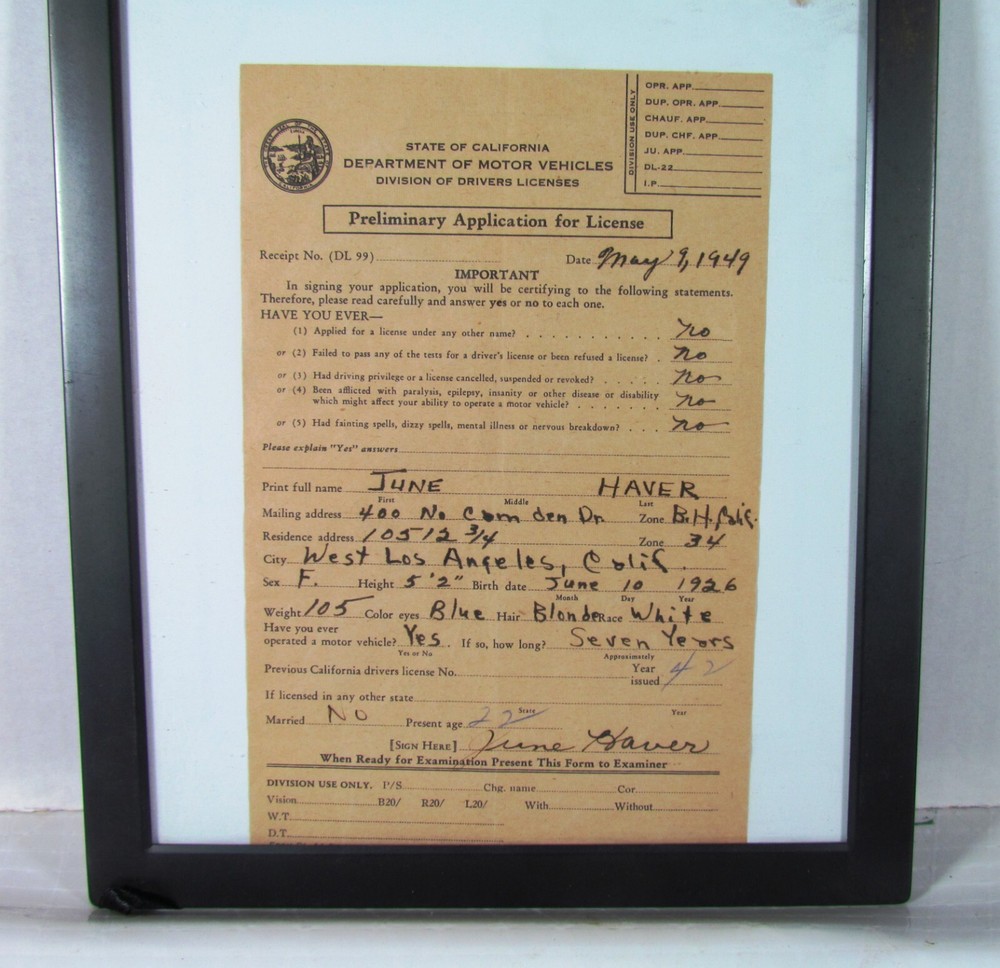 DIVISION USE ONLY
OPR. APP.
DUP. OPR. APP.
CHAUF. APP.
DUP. CHF. APP.
JU. APP.
DL-22
I.P.
STATE OF CALIFORNIA
DEPARTMENT OF MOTOR VEHICLES
DIVISION OF DRIVERS LICENSES
Preliminary Application for License
Receipt No. (DL 99) Date May 9, 1949
IMPORTANT
In signing your application, you will be certifying to the following statements.
Therefore, please read carefully and answer yes or no to each one.
HAVE YOU EVER—
(1) Applied for a license under any other name? No
or (2) Failed to pass any of the tests for a driver's license or been refused a license? No
or (3) Had driving privilege or a license cancelled, suspended or revoked? No
or (4) Been afflicted with paralysis, epilepsy, insanity or other disease or disability
which might affect your ability to operate a motor vehicle? No
or (5) Had fainting spells, dizzy spells, mental illness or nervous breakdown? No
Please explain "Yes" answers
Print full name JUNE HAVER
First Middle Last
Mailing address 400 No Camden Dr. Zone B.H. Calif.
Residence address 10512 3/4 Zone 34
City West Los Angeles, Calif.
Sex F. Height 5'2" Birth date June 10 1926
Month Day Year
Weight 105 Color eyes Blue Hair Blonde Race White
Have you ever
operated a motor vehicle? Yes. If so, how long? Seven Years
Yes or No Approximately
Previous California drivers license No. Year issued 42
If licensed in any other state
State Year
Married NO Present age 22
[SIGN HERE] June Haver
When Ready for Examination Present This Form to Examiner
DIVISION USE ONLY. P/S Chg. name Cor.
Vision B20/ R20/ L20/ With Without
W.T.
D.T.